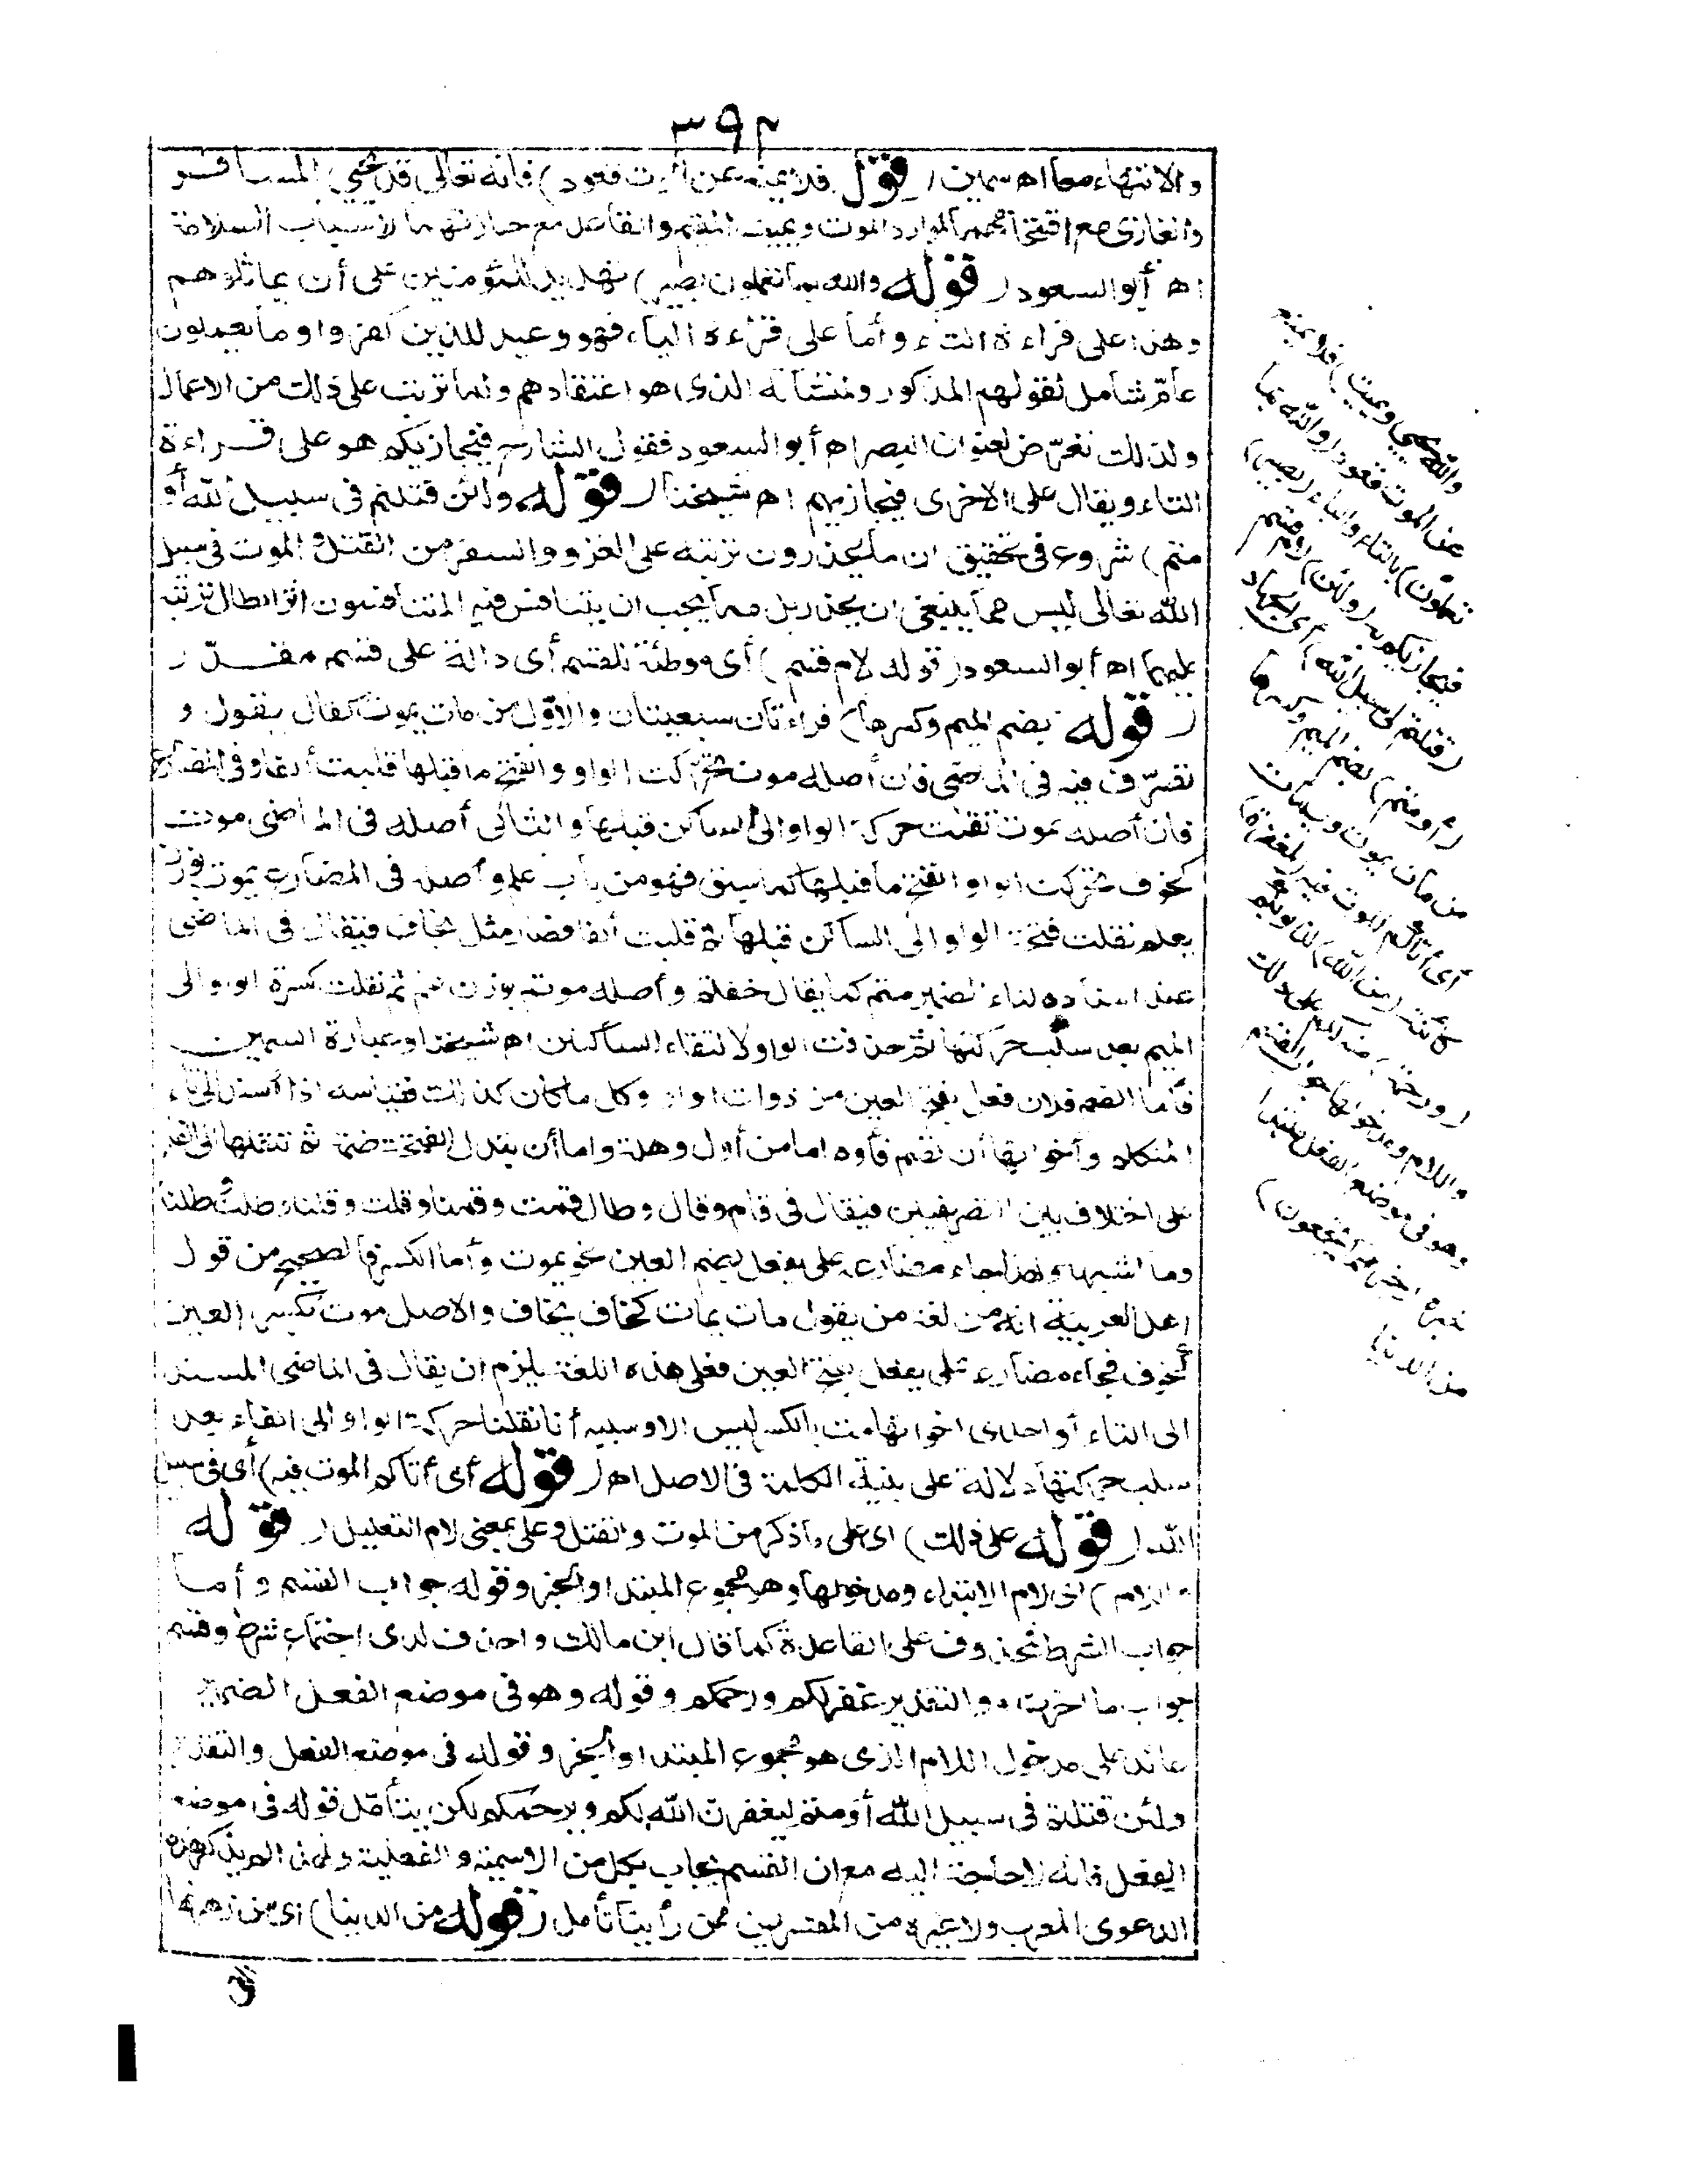 ٣٩٢
والانتهاء معا اه سمين (قوله فلا يمنع عن الموت قعود) فانه تعالى قد يحيي المسافر
والغازى مع اقتحامهما لموارد الموت ويميت المقيم والقاعد مع حيازتهما لاسباب السلامة
اه أبو السعود (قوله والله بما تعملون بصير) تهديد للمؤمنين على أن يماثلوهم
وهذا على قراءة التاء وأما على قراءة الياء فهو وعيد للذين كفروا وما يعملون
عام شامل لقولهم المذكور ولمنشائه الذى هو اعتقادهم ولما ترتب على ذلك من الاعمال
ولذلك تعرض لعنوان البصر اه أبو السعود فقول الشارح فيجازيكم هو على قراءة
التاء ويقال على الاخرى فيجازيهم اه شيخنا (قوله ولئن قتلتم فى سبيل الله أو
متم) شروع فى تحقيق ان ما يحذرون ترتبه على الغزو والسفر من القتل والموت فى سبيل
الله تعالى ليس مما ينبغى ان يحذر بل مما يجب ان يتنافس فيه المتنافسون اثر ابطال ترتبه
عليهما اه أبو السعود (قوله لام قسم) أى موطئة للقسم أى دالة على قسم مقدر
(قوله بضم الميم وكسرها) قراءتان سبعيتان والاول من مات يموت كقال يقول و
تصرف فيه فى الماضى فان أصله موت تحركت الواو وانفتح ما قبلها قلبت ألفا وفى المضارع
فان أصله يموت نقلت حركة الواو الى الساكن قبلها والثانى أصله فى الماضى موت
كخوف تحركت الواو وانفتح ما قبلها كما سبق فهو من باب علم وأصله فى المضارع يموت بوزن
يعلم نقلت فتحة الواو الى الساكن قبلها ثم قلبت ألفا فصار مثل يخاف فيقال فى الماضى
عند اسناده لتاء الضمير متم كما يقال خفتم وأصله موتم بوزن علم ثم نقلت كسرة الواو الى
الميم بعد سلب حركتها ثم حذفت الواو لالتقاء الساكنين اه شيخنا وعبارة السمين
فأما الضم فلان فعل بفتح العين من ذوات الواو وكل ما كان كذلك فقياسه اذا أسند الى تاء
المتكلم وأخواتها أن تضم فاؤه اما من أول وهلة واما أن يبدل الفتحة ضمة ثم تنقلها الى الفاء
على اختلاف بين التصريفيين فيقال فى قام وقال وطال قمت وقمنا وقلت وقلنا وطلت وطلنا
وما اشبهها ولهذا جاء مضارعه على يفعل بضم العين نحو يموت وأما الكسر فالصحيح من قول
اهل العربية انه من لغة من يقول مات يمات كخاف يخاف والاصل موت بكسر العين
كخوف فجاء مضارعه على يفعل بفتح العين فعلى هذه اللغة يلزم ان يقال فى الماضى المسند
الى التاء أو احدى اخواتها مت بالكسر ليس الا وسببه أنا نقلنا حركة الواو الى الفاء بعد
سلب حركتها دلالة على بنية الكلمة فى الاصل اه (قوله أى أتاكم الموت فيه) أى فى سبيل
الله (قوله على ذلك) اى على ما ذكر من الموت والقتل وعلى بمعنى لام التعليل (قوله
واللام) اى لام الابتداء ومدخولها وهو مجموع المبتدا والخبر وقوله جواب القسم وأما
جواب الشرط محذوف على القاعدة كما قال ابن مالك واحذف لدى اجتماع شرط وقسم
جواب ما اخرت والتقدير غفر لكم ورحمكم وقوله وهو فى موضع الفعل الضمير
عائد على مدخول اللام الذى هو مجموع المبتدا والخبر وقوله فى موضع الفعل والتقدير
ولئن قتلتم فى سبيل الله أو متم ليغفرن الله لكم ويرحمكم لكن يتأمل قوله فى موضع
الفعل فانه لا حاجة اليه مع ان القسم يجاب بكل من الاسمية والفعلية ولهذا لم يذكر هذه
الدعوى المعرب ولا غيره من المفسرين ممن رأينا تأمل (قوله من الدنيا) اى من زهرتها
والله يحيي ويميت) فلا يمنع
عن الموت قعود (والله بما
تعملون) بالتاء والياء (بصير)
فيجازيكم به (ولئن) لام قسم
(قتلتم فى سبيل الله) أى الجهاد
(أو متم) بضم الميم وكسرها
من مات يموت ويمات
أى أتاكم الموت فيه (لمغفرة)
كائنة (من الله) لذنوبكم
(ورحمة) منه لكم على ذلك
واللام ومدخولها جواب القسم
وهو فى موضع الفعل مبتدا
خبره (خير مما تجمعون)
من الدنيا